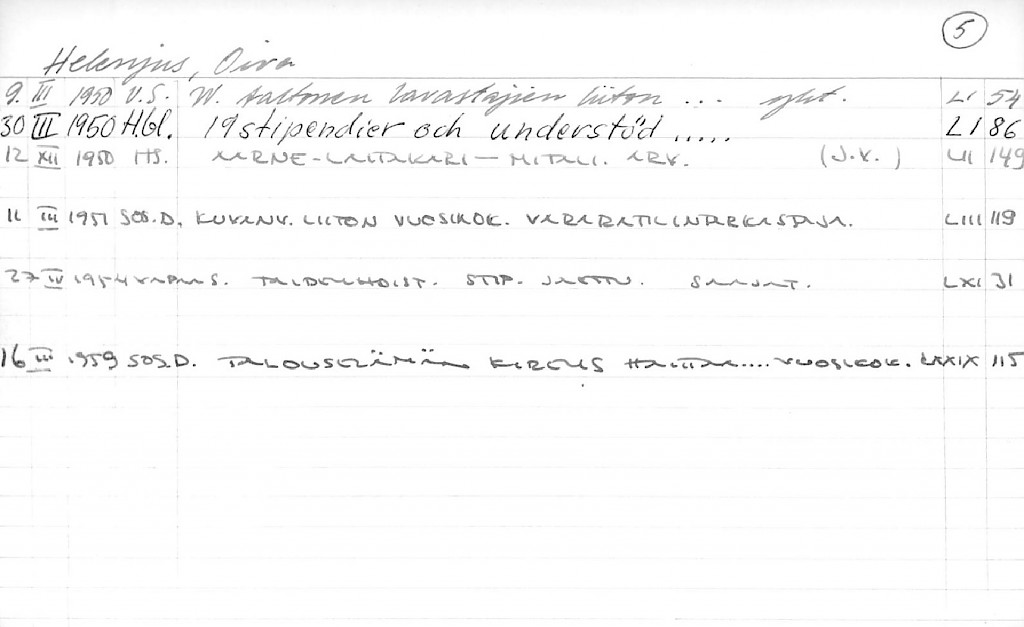 5
Helenius, Oiva
9. III 1950 V.S. W. Aaltonen lavastajien liiton ... yht. LI 54
30 III 1950 Hbl. 19 stipendier och understöd ..... LI 86
12 XII 1950 HS. AARNE-LAITAKARI-MITALI. ARV. (J.V.) LII 149
11 III 1951 SOS.D. KUVANV. LIITON VUOSIKOK. VARARATILINTARKASTAJA. LIII 119
27 IV 1954 VAPAA S. TAIDEAHOIST. STIP. JAETTU. SAAJAT. LXI 31
16 III 1959 SOS.D. TALOUSELÄMÄN KIREUS HAITTAA.... VUOSIKOK. LXXIX 115